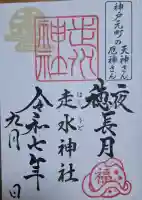 神戸元町の天神さん
厄神さん
走水神社
夜
穂長月
はしうど
走水神社
令和七年
九月 日
福